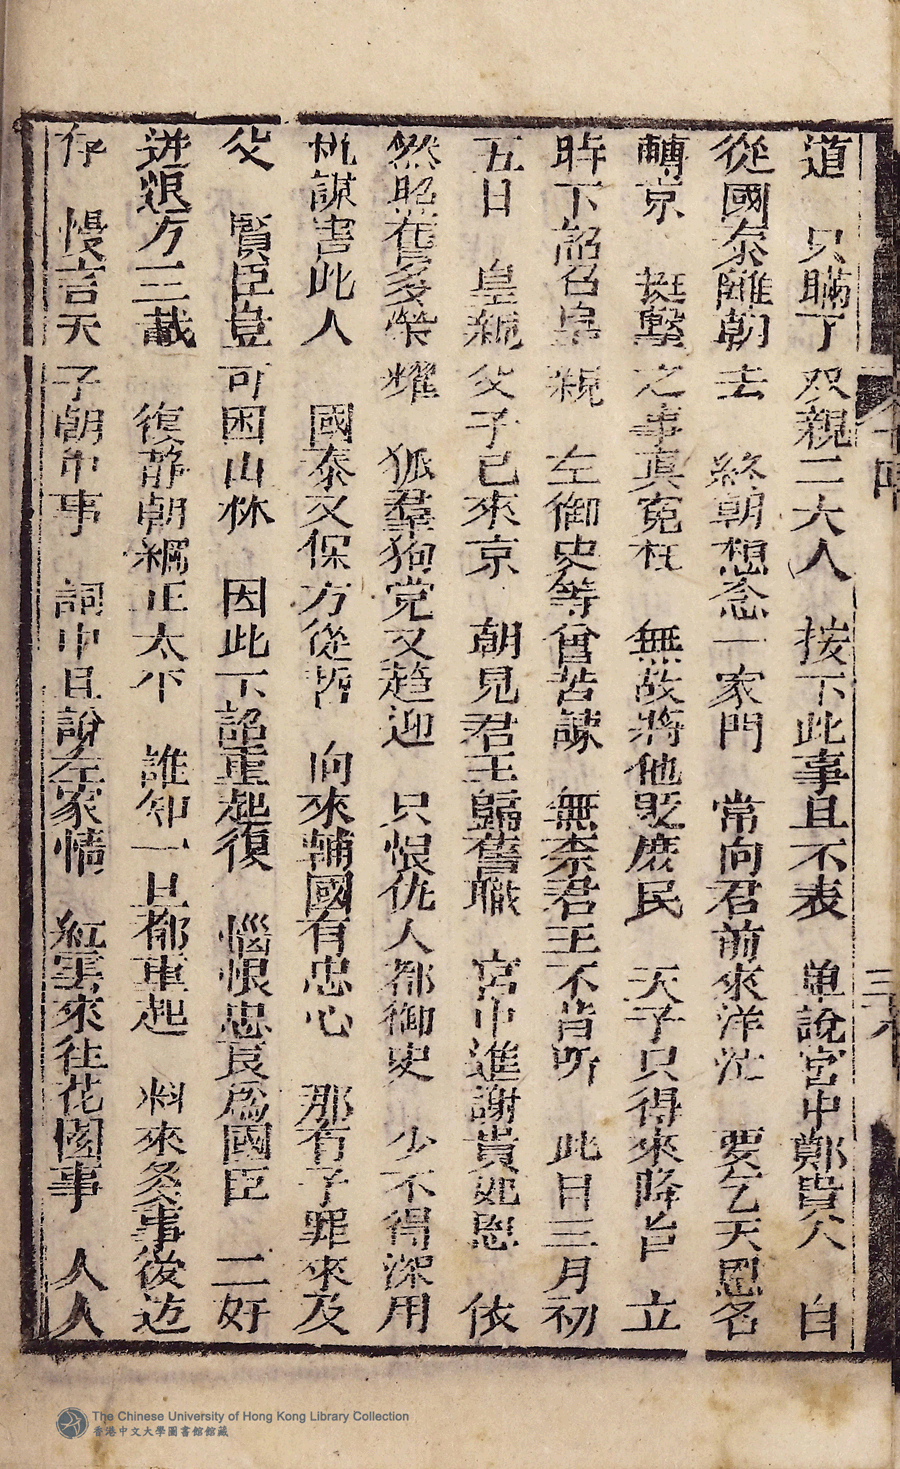 道　只瞞了双親二大人　按下此事且不表　單說宮中鄭貴人　自
從國泰離朝去　終朝想念一家門　常向君前來洋泣　要乞天恩名
轉京　挺擊之事真寃枉　無故將他貶庶民　天子只得來降旨　立
時下詔召皇親　左御史等曾苦諫　無柰君王不肯听　此日三月初
五日　皇親父子已來京　朝見君王歸舊職　宮中進謝貴妃恩　依
然照舊多榮耀　狐羣狗党又趋迎　只恨仇人都御史　少不得深用
机謀害此人　國泰又保方從哲　向來輔國有忠心　那有子罪來及
父　賢臣豈可困山林　因此下詔重起復　惱恨忠良爲國臣　二奸
逬退方三載　復静朝綱正太平　誰知一旦都重起　料來灸事後边
存　慢言天子朝中事　詞中且說左家情　紅雲來往花園事　人人
三八
The Chinese University of Hong Kong Library Collection
香港中文大學圖書館館藏